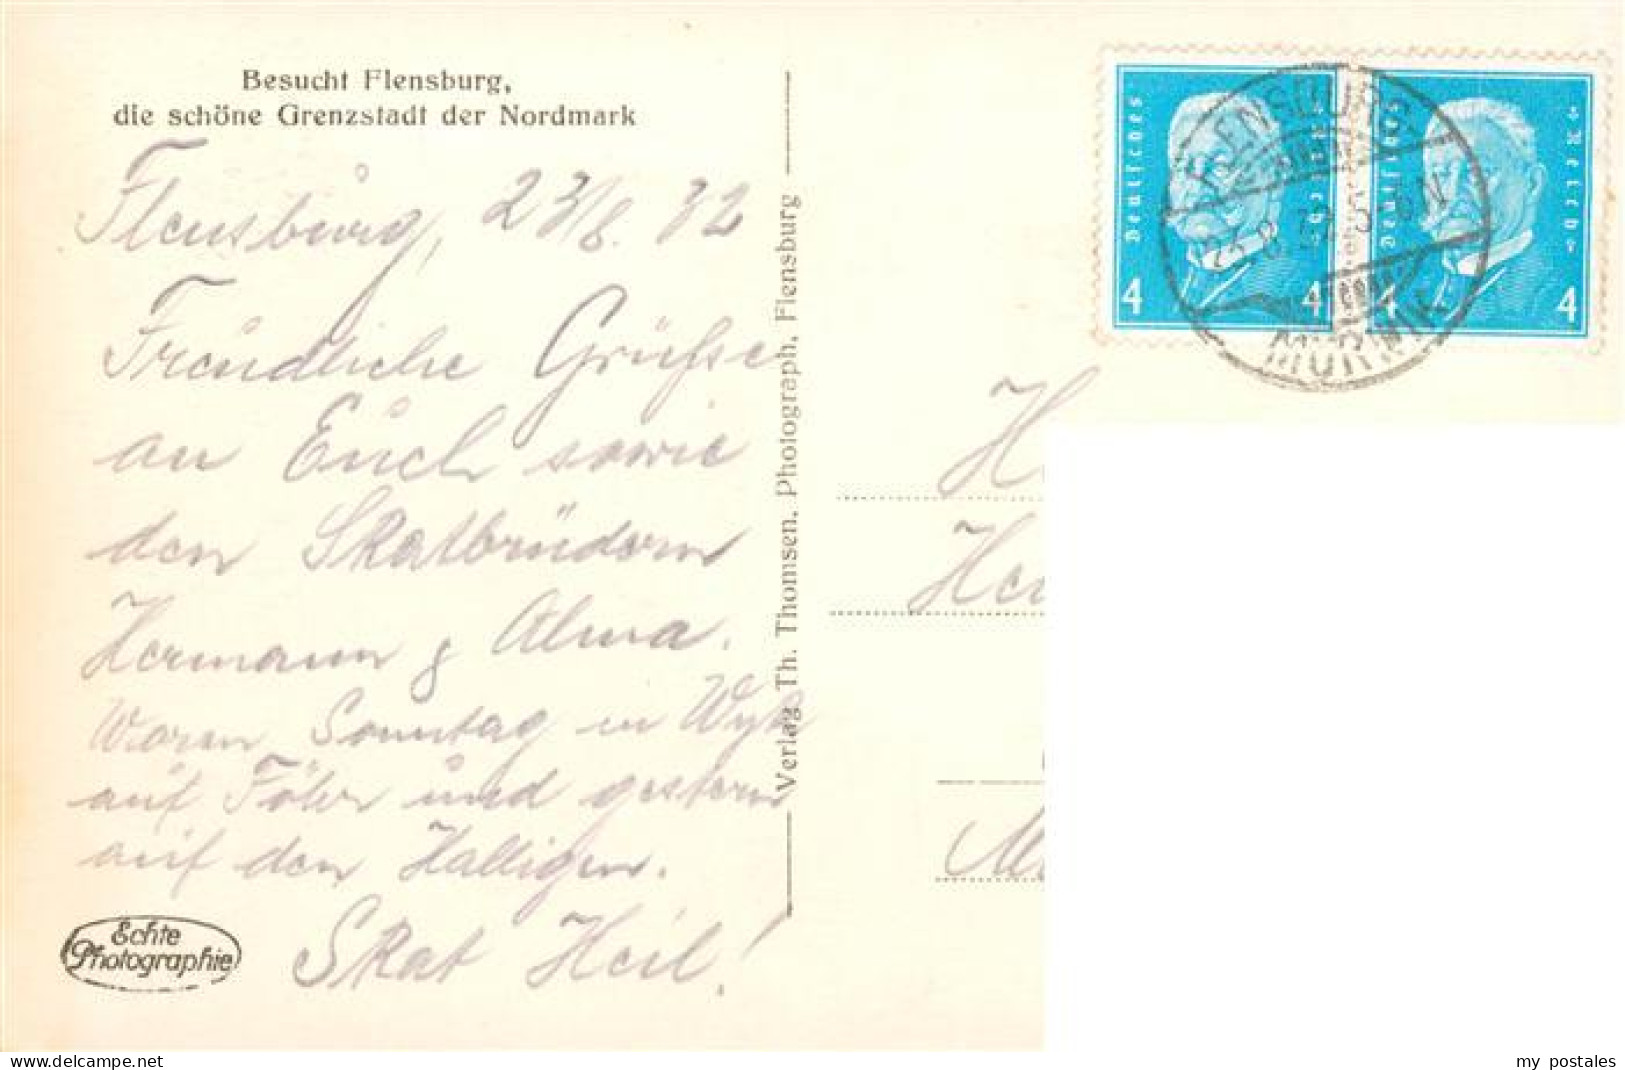 Besucht Flensburg,
die schöne Grenzstadt der Nordmark
Flensburg, 23/8. 32
Freundliche Grüsse
an Euch sowie
den Skatbrüdern
Hermann & Alma.
Waren Sonntag in Wyk
auf Föhr und gestern
auf den Halligen.
Skat Heil!
Echte
Photographie
Verlag Th. Thomsen, Photograph, Flensburg
Deutsches Reich
4 4
Deutsches Reich
4 4
FLENSBURG
23.8.32. 5-6 N
MÜRWIK
H
Hei
M
www.delcampe.net
my_postales